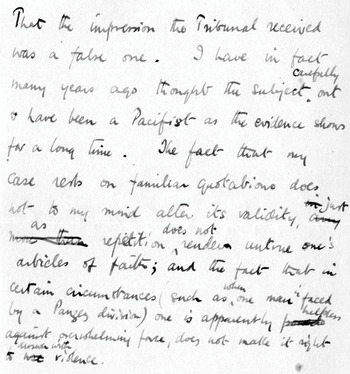 That the impression the Tribunal received
was a false one. I have in fact
carefully
many years ago thought the subject out
& have been a Pacifist as the evidence shows
for a long time. The fact that my
case rests on familiar quotations does
not to my mind alter its validity, just
as does not
more than repetition renders untrue one's
articles of faith; and the fact that in
when
certain circumstances (such as one man faced
helpless
by a Panzer division) one is apparently
against overwhelming force, does not make it right
to with violence.